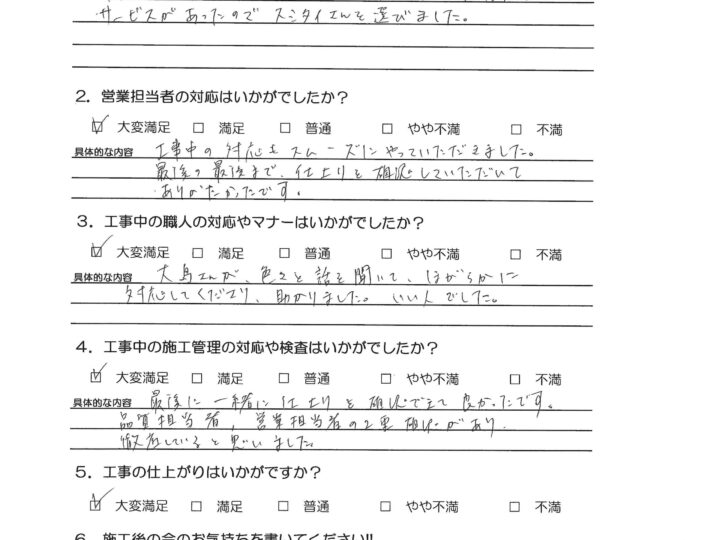 サービスがあったのでスミタイさんを選びました。
2．営業担当者の対応はいかがでしたか？
☑ 大変満足 □ 満足 □ 普通 □ やや不満 □ 不満
具体的な内容 工事中の対応もスムーズにやっていただきました。
最後の最後まで、仕上りを確認していただいて
ありがたかったです。
3．工事中の職人の対応やマナーはいかがでしたか？
☑ 大変満足 □ 満足 □ 普通 □ やや不満 □ 不満
具体的な内容 大島さんが、色々と話を聞いて、ほがらかに
対応してくださり、助かりました。いい人でした。
4．工事中の施工管理の対応や検査はいかがでしたか？
☑ 大変満足 □ 満足 □ 普通 □ やや不満 □ 不満
具体的な内容 最後に一緒に仕上りを確認できて良かったです。
品質担当者，営業担当者の2重確認があり、
徹底していると思いました。
5．工事の仕上がりはいかがですか？
☑ 大変満足 □ 満足 □ 普通 □ やや不満 □ 不満
6．施工後の今のお気持ちを書いてください!!